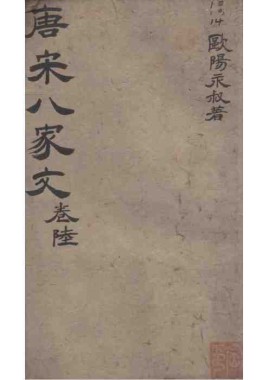 歐陽永叔著
唐宋八家文
卷陸